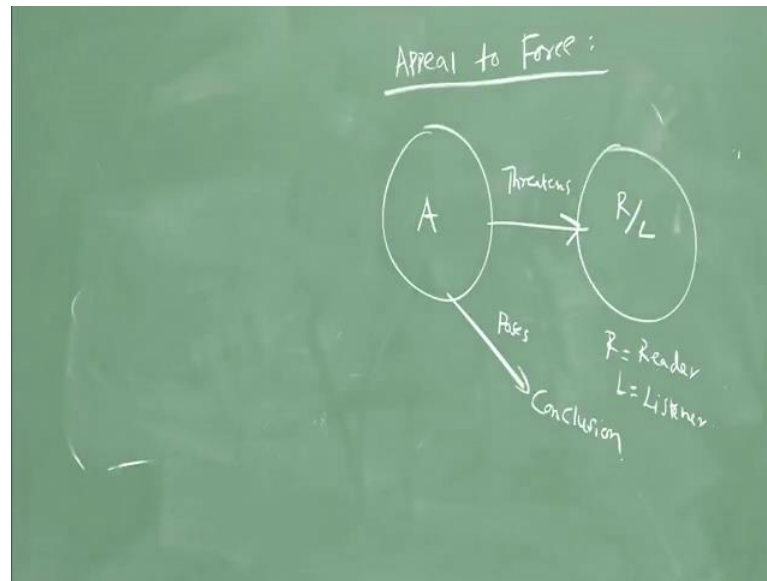 Appeal to Force:
Threatens
A
R/L
Poses
R = Reader
L = Listener
Conclusion